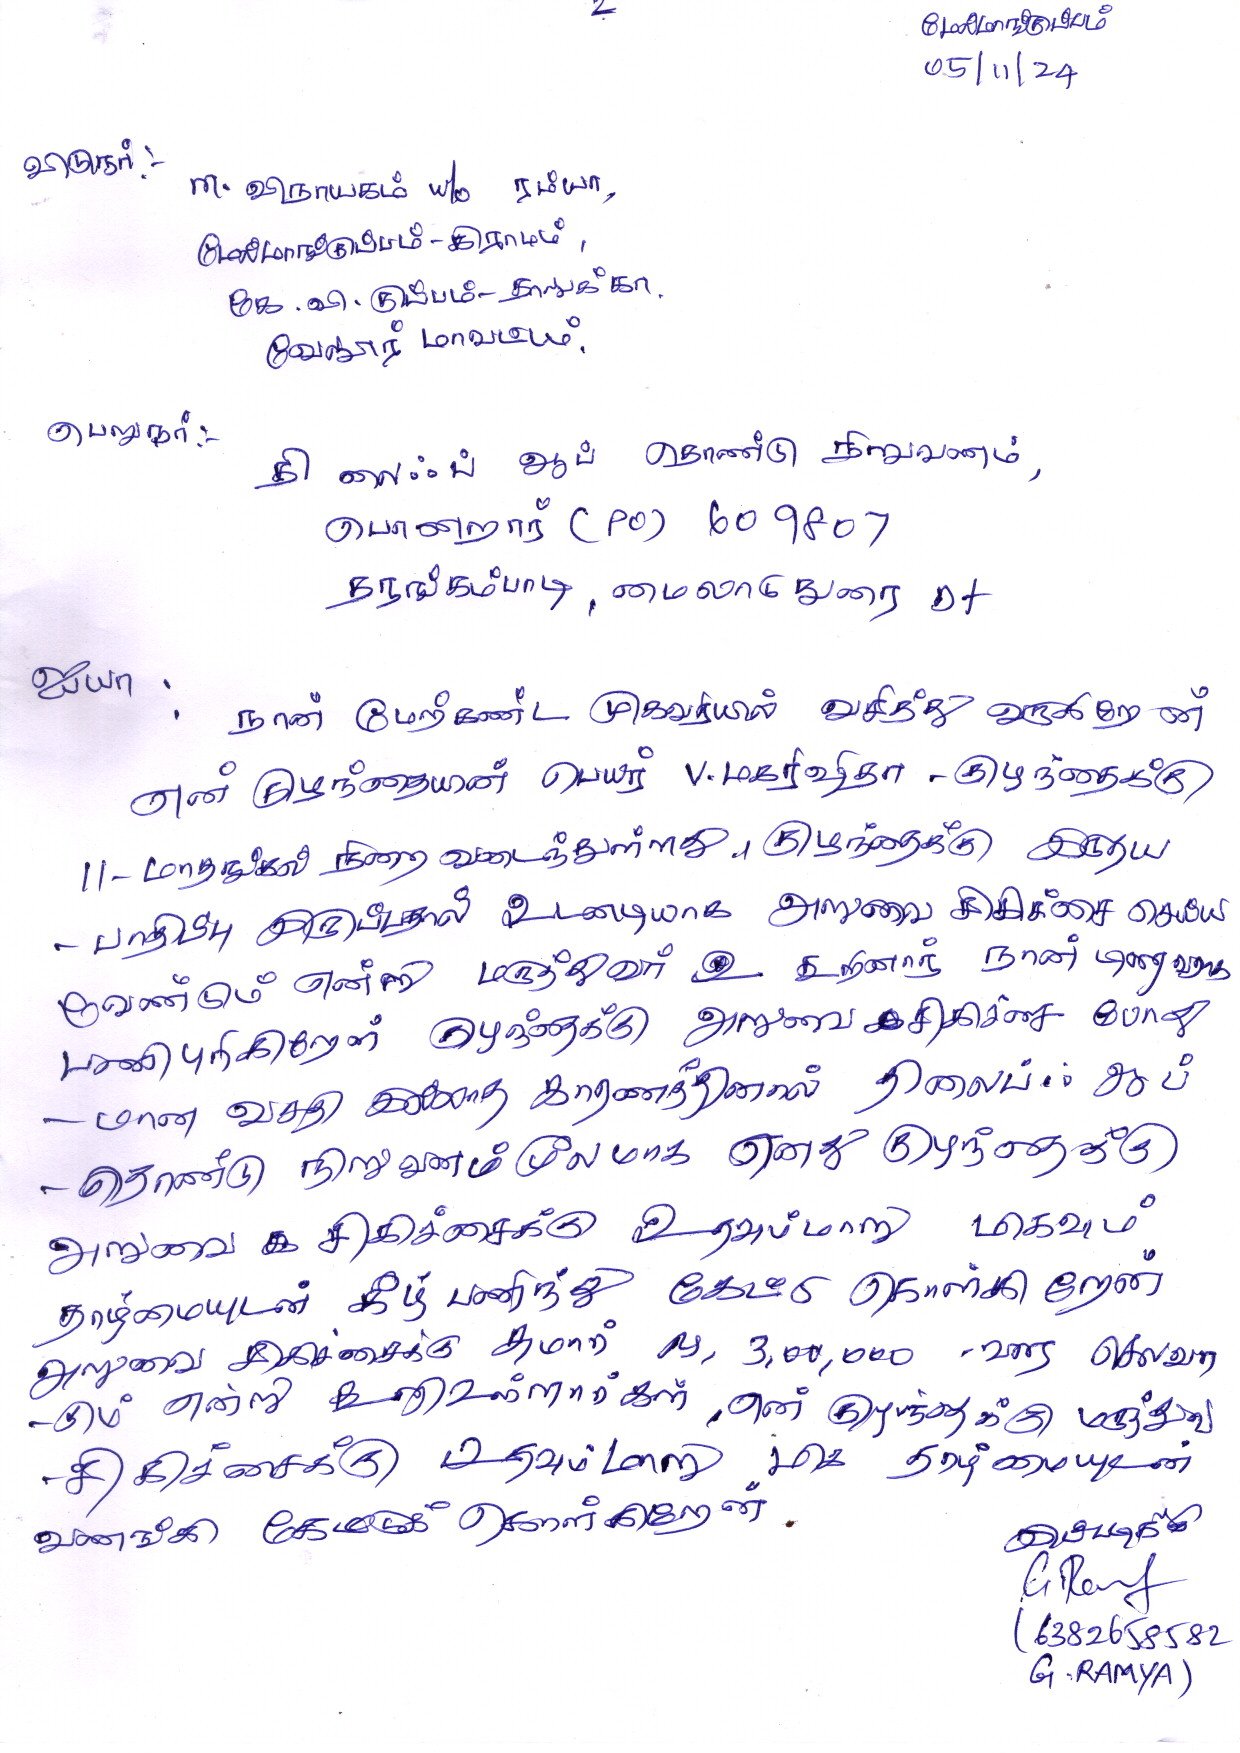 2
மேல்மாங்குப்பம்
05/11/24
விடுநர்:-
m. விநாயகம் w/o ரம்யா,
மேல்மாங்குப்பம் - கிராமம்,
கே.வி. குப்பம் - தாலுக்கா.
வேலூர் மாவட்டம்.
பெறுநர்:-
தி லைஃப் ஆப் தொண்டு நிறுவனம்,
பொறையார் (PO) 609807
தரங்கம்பாடி, மைலாடுதுரை Dt
ஐயா :
நான் மேற்கண்ட முகவரியில் வசித்து வருகிறேன்
என் குழந்தையின் பெயர் V. மகரிஷிதா - குழந்தைக்கு
11 - மாதங்கல் நிறைவடைந்துள்ளது, குழந்தைக்கு இருதய
- பாதிப்பு இருப்பதால் உடனடியாக அறுவை சிகிச்சை செய்ய
வேண்டும் என்று மருத்துவர் கூறினார் நான்
பணிபுரிகிறேன் குழந்தைக்கு அறுவை சிகிச்சை போது
- மான வசதி இல்லாத காரணத்தினால் திலைப்ஃ ஆப்
- தொண்டு நிறுவனம் மூலமாக எனது குழந்தைக்கு
அறுவை சிகிச்சைக்கு உதவுமாறு மிகவும்
தாழ்மையுடன் கீழ் பணிந்து கேட்டு கொள்கிறேன்
அறுவை சிகிச்சைக்கு சுமார் ரூ, 3,00,000 - வரை செலவா
- கும் என்று கூறிஉள்ளார்கள், என் குழந்தைக்கு மருத்துவ
- சிகிச்சைக்கு உதவும்மாறு மிக தாழ்மையுடன்
வணங்கி கேட்டுக் கொள்கிறேன்.
இப்படிக்கு
G Ramy
(6382658582
G. RAMYA)